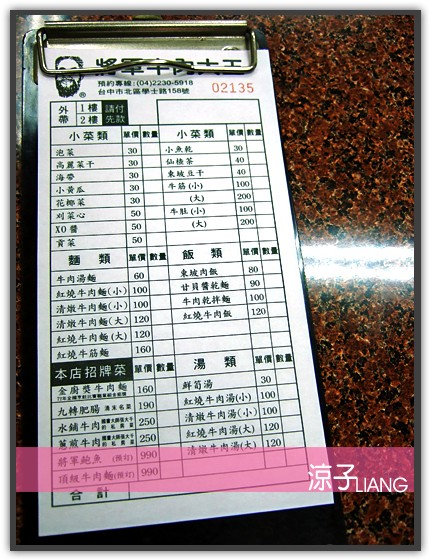 將軍牛肉大王
®
預約專線:(04)2230-5918
台中市北區學士路158號
02135
外帶 1樓 2樓 請付先款
小菜類 單價 數量
泡菜 30
高麗菜干 30
海帶 30
小黃瓜 30
花椰菜 30
刈菜心 50
XO醬 50
貢菜 50
小菜類 單價 數量
小魚乾 30
仙楂茶 40
東坡豆干 40
牛筋(小) 100
(大) 200
牛肚(小) 100
(大) 200
麵類 單價 數量
牛肉湯麵 60
紅燒牛肉麵(小) 100
清燉牛肉麵(小) 100
清燉牛肉麵(大) 120
紅燒牛肉麵(大) 120
紅燒牛筋麵 160
飯類 單價 數量
東坡肉飯 80
甘貝醬乾麵 90
牛肉乾拌麵 100
紅燒牛肉飯 120
本店招牌菜 單價 數量
金廚獎牛肉麵 160
九轉肥腸 清末名菜 190
水鋪牛肉 250
蔥煎牛肉 250
將軍鮑魚(預訂) 990
頂級牛肉麵(預訂) 990
湯類 單價 數量
鮮筍湯 30
紅燒牛肉湯(小) 100
清燉牛肉湯(小) 100
紅燒牛肉湯(大) 120
清燉牛肉湯(大) 120
合計
涼子LIANG